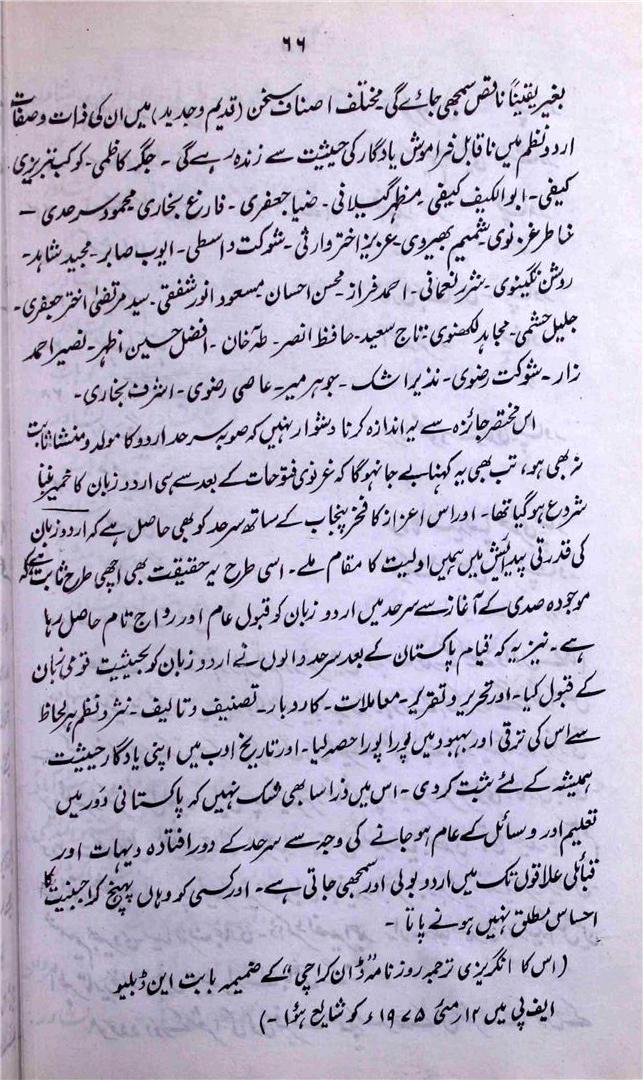 ۶۶
بغیر یقیناً ناقص سمجھی جائے گی مختلف اصناف سخن (قدیم وجدید) میں ان کی ذات وصفات
اردو نظم میں ناقابل فراموش یادگار کی حیثیت سے زندہ رہے گی ۔ جگر کاظمی ۔ کوکب تبریزی
کیفی ۔ ابوالکیف کیفی ۔ مظہر گیلانی ۔ ضیا جعفری ۔ فارغ بخاری محمود سرحدی ۔
خاطر غزنوی ۔ شمیم بھیروی ۔ عزیز اختر وارثی ۔ شوکت واسطی ۔ ایوب صابر ۔ مجید شاہد ۔
روشن نگینوی ۔ نثر نعمانی ۔ احمد فراز ۔ محسن احسان مسعود انور شفقی ۔ سید مرتضیٰ اختر جعفری ۔
جلیل حشمی ۔ مجاہد لکھنوی ۔ تاج سعید ۔ حافظ انصر ۔ طہٰ خان ۔ افضل حسین اظہر ۔ نصیر احمد
زار ۔ شوکت رضوی ۔ نذیر اشک ۔ جوہر میر ۔ عاصی رضوی ۔ اشرف بخاری ۔
اس مختصر جائزہ سے یہ اندازہ کرنا دشوار نہیں کہ صوبہ سرحد اردو کا مولد و منشا ثابت
نہ بھی ہو، تب بھی یہ کہنا بے جا نہ ہوگا کہ غزنوی فتوحات کے بعد سے ہی اردو زبان کا خمیر بننا
شروع ہو گیا تھا ۔ اور اس اعزاز کا فخر پنجاب کے ساتھ سرحد کو بھی حاصل ہے کہ اردو زبان
کی قدرتی پیدائش میں ہمیں اولیت کا مقام ملے ۔ اسی طرح یہ حقیقت بھی اچھی طرح ثابت ہے کہ
موجودہ صدی کے آغاز سے سرحد میں اردو زبان کو قبول عام اور رواج تام حاصل رہا
ہے ۔ نیز یہ کہ قیام پاکستان کے بعد سرحد والوں نے اردو زبان کو بحیثیت قومی زبان
کے قبول کیا ۔ اور تحریر و تقریر ۔ معاملات ۔ کاروبار ۔ تصنیف و تالیف ۔ نثر و نظم ہر لحاظ
سے اس کی ترقی اور بہبود میں پورا پورا حصہ لیا ۔ اور تاریخ ادب میں اپنی یادگار حیثیت
ہمیشہ کے لئے ثبت کر دی ۔ اس میں ذرا سا بھی شک نہیں کہ پاکستانی دور میں
تعلیم اور وسائل کے عام ہو جانے کی وجہ سے سرحد کے دور افتادہ دیہات اور
قبائلی علاقوں تک میں اردو بولی اور سمجھی جاتی ہے ۔ اور کسی کو وہاں پہنچ کر اجنبیت کا
احساس مطلق نہیں ہونے پاتا ۔
(اس کا انگریزی ترجمہ روزنامہ "ڈان کراچی" کے ضمیمہ بابت این ڈبلیو
ایف پی میں ۱۲ مئی ۱۹۷۵ء کو شایع ہؤا ۔)